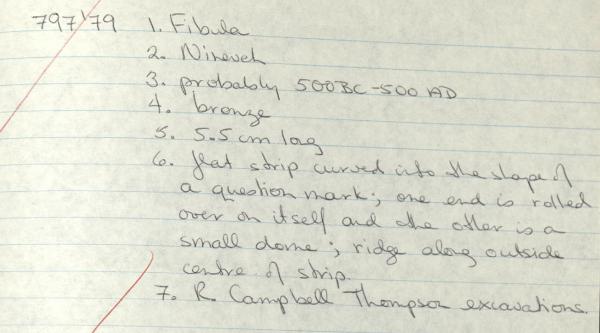 797'79 1. Fibula
2. Nineveh
3. probably 500BC-500 AD
4. bronze
5. 5.5cm long
6. flat strip curved into the shape of
a question mark; one end is rolled
over on itself and the other is a
small dome; ridge along outside
centre of strip.
7. R. Campbell Thompson excavations.